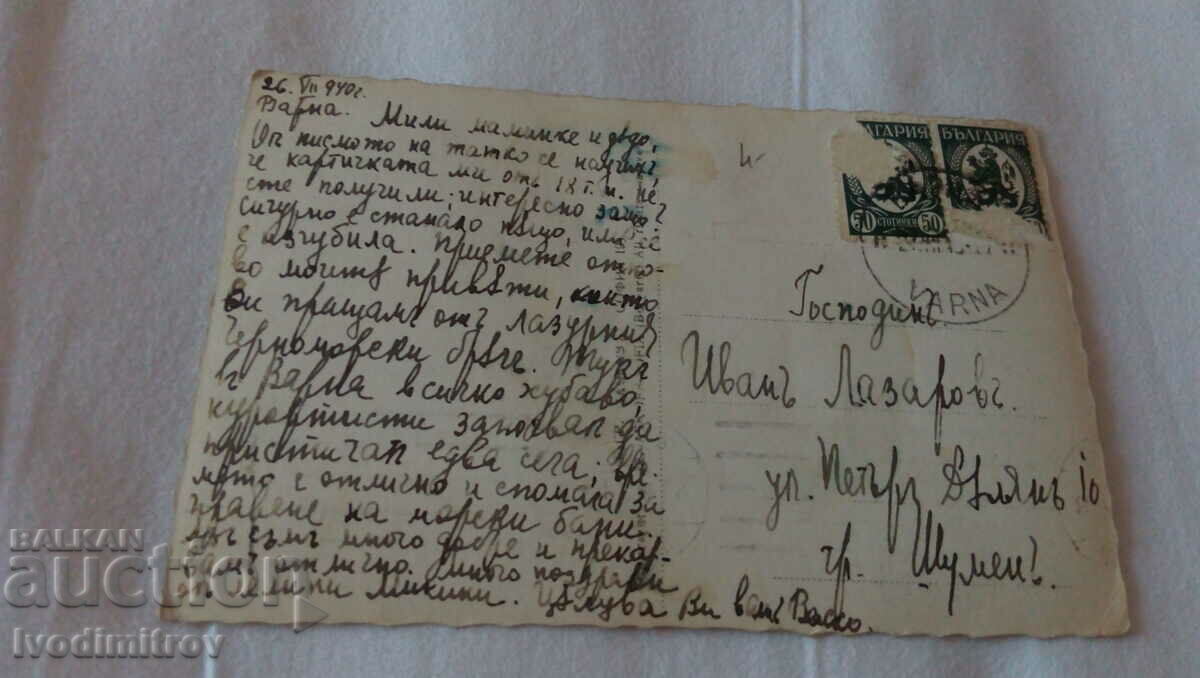 26. VII 940 г.
Варна. Мили маминке и дѣдо,
Отъ писмото на татко се научихъ,
че картичката ми отъ 18 т. м. не
сте получили; интересно защо?
Сигурно е станало нѣщо, или се
е изгубила. Приемете отно-
во моитѣ привѣти, които
Ви пращамъ отъ лазурния
Черноморски брѣгъ. Тукъ
въ Варна всичко хубаво,
курортисти започват да
пристигат едва сега; вре-
мето е отлично и спомага за
правене на морски бани.
Азъ съмъ много добре и прекар-
вамъ отлично. Много поздрави
от Милини. Цѣлува Ви вашъ Васко.
БЪЛГАРИЯ
БЪЛГАРИЯ
50 СТОТИНКИ 50
VARNA
Господинъ
Иванъ Лазаровъ
ул. Петъръ Дѣлянъ 10
гр. Шуменъ.
BALKAN
auction
Ivodimitrov